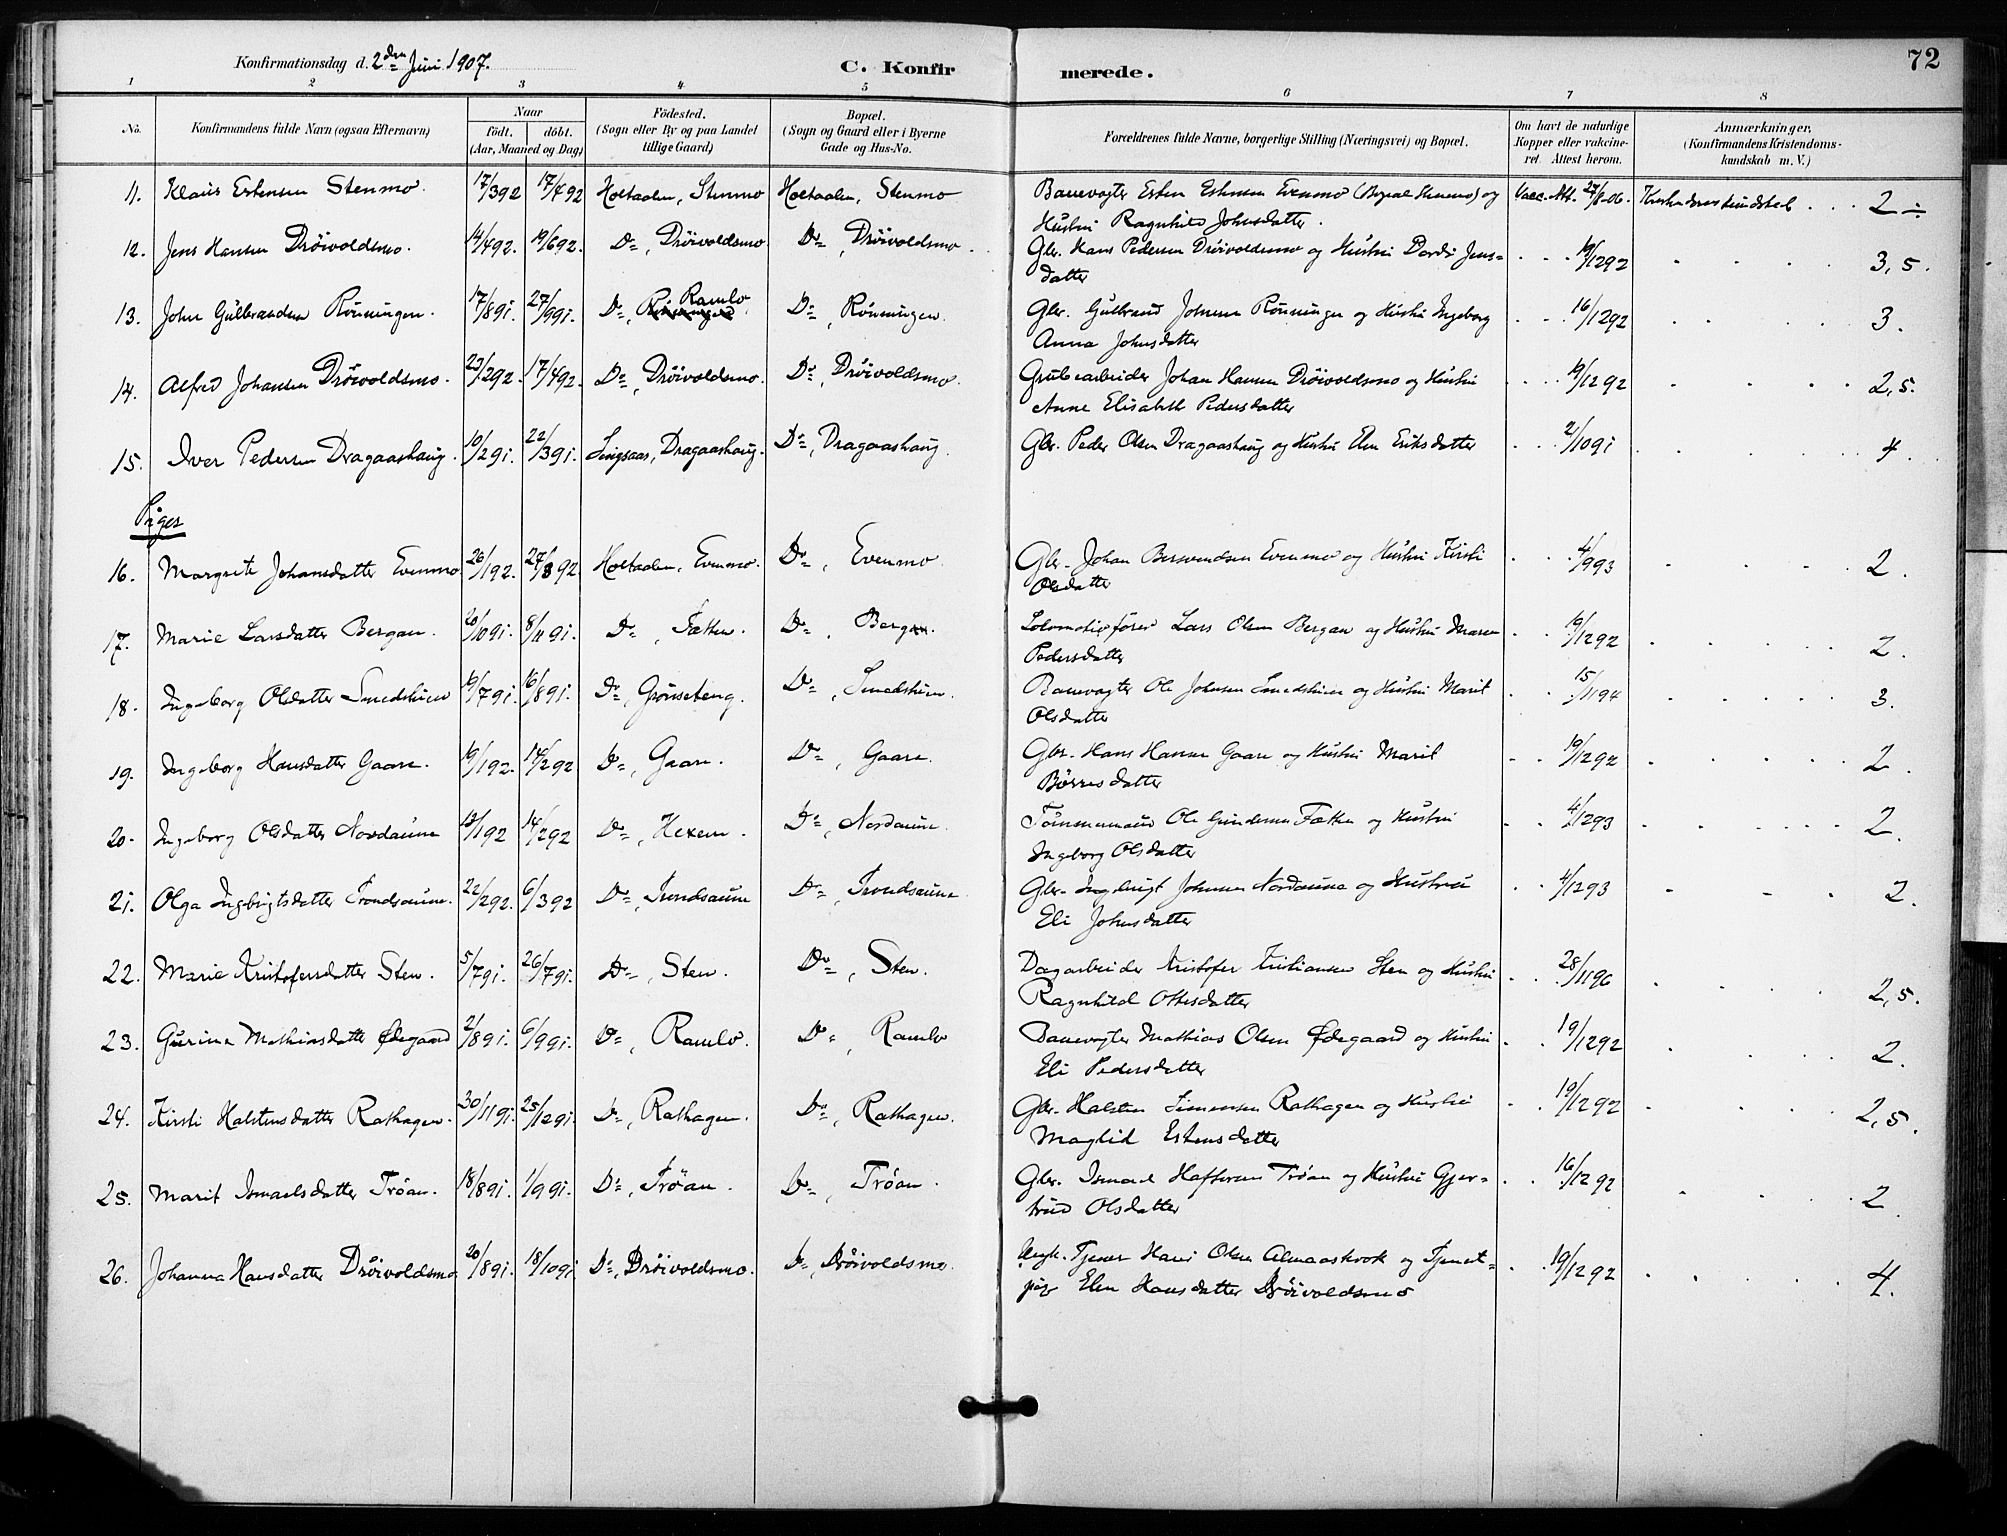 72
Konfirmationsdag d. 2den Juni 1907.
C. Konfirmerede.
1 2 3 4 5 6 7 8
No.
Konfirmandens fulde Navn (ogsaa Efternavn)
Naar
født. døbt.
(Aar, Maaned og Dag)
Födested.
(Sogn eller By og paa Landet
tillige Gaard)
Bopæl.
(Sogn og Gaard eller i Byerne
Gade og Hus-No.
Forældrenes fulde Navne, borgerlige Stilling (Næringsvei) og Bopæl.
Om havt de naturlige
Kopper eller vakcine-
ret. Attest herom.
Anmærkninger,
(Konfirmandens Kristendoms-
kundskab m. V.)
11. Klaus Estensen Stenmo. 17/3 92 17/4 92 Holtaalen, Stenmo Holtaalen, Stenmo Banevogter Esten Estensen Evenmo (Bopæl Stenmo) og Vacc. Att. 27/8-06. Kristendomskundskab . . . 2÷
Hustru Ragnhild Johnsdatter.
12. Jens Hansen Dröivoldsmo. 14/4 92. 19/6 92. Do, Dröivoldsmo Do, Dröivoldsmo. Gbr. Hans Pedersen Dröivoldsmo og Hustru Dordi Jens- 19/12 92 3,5.
datter
13. John Gulbrandsen Rönningen. 17/8 91. 27/9 91. Do, Ramlo Do, Rönningen. Gbr. Gulbrand Johnsen Rönningen og Hustru Ingeborg 16/12 92 3.
Anna Johnsdatter
14. Alfred Johansen Dröivoldsmo. 23/2 92. 17/4 92. Do, Dröivoldsmo. Do, Dröivoldsmo. Grubearbeider Johan Hansen Dröivoldsmo og Hustru 19/12 92 2,5.
Anne Elisabeth Pedersdatter
15. Iver Pedersen Dragaashaug. 10/2 91. 22/3 91. Singsaas, Dragaashaug. Do, Dragaashaug. Gbr. Peder Olsen Dragaashaug og Hustru Elen Eriksdatter 2/10 91 4.
Piger
16. Margrete Johansdatter Evenmo 26/1 92. 27/3 92 Holtaalen, Evenmo. Do, Evenmo. Gbr. Johan Bersvendsen Evenmo og Hustru Kirsti 4/9 93 2.
Olsdatter
17. Marie Larsdatter Bergan. 20/10 91. 8/11 91. Do, Fætten. Do, Berg. Lokomotivfører Lars Olsen Bergan og Hustru Maren 19/12 92 2.
Pedersdatter
18. Ingeborg Olsdatter Smedshien 19/7 91. 16/8 91. Do, Grönseteng. Do, Smedshien. Banevogter Ole Johnsen Smedshien og Hustru Marit 15/11 94 3.
Olsdatter
19. Ingeborg Hansdatter Gaare. 19/1 92. 14/2 92 Do, Gaare. Do, Gaare. Gbr. Hans Hansen Gaare og Hustru Marit 19/12 92 2.
Börresdatter
20. Ingeborg Olsdatter Nordaune 13/1 92 14/2 92 Do, Hexem. Do, Nordaune. Tömmermand Ole Gundersen Fætten og Hustru 4/12 93 2.
Ingeborg Olsdatter
21. Olga Ingebrigtsdatter Trondsaune. 22/2 92. 6/3 92 Do, Trondsaune Do, Trondsaune Gbr. Ingebrigt Johnsen Nordaune og Hustru 4/12 93 2.
Eli Johnsdatter
22. Marie Kristofersdatter Sten. 5/7 91. 26/7 91. Do, Sten. Do, Sten. Dagarbeider Kristofer Kristiansen Sten og Hustru 28/11 96 2,5.
Ragnhild Ottesdatter
23. Gurine Mathiasdatter Ødegaard 2/8 91. 6/9 91. Do, Ramlo. Do, Ramlo Banevogter Mathias Olsen Ødegaard og Hustru 19/12 92 2.
Eli Pedersdatter
24. Kirsti Halstensdatter Rathagen. 30/11 91. 25/12 91. Do, Rathagen. Do, Rathagen. Gbr. Halsten Simensen Rathagen og Hustru 19/12 92 2,5.
Maglid Estensdatter
25. Marit Ismaelsdatter Tröan. 18/8 91. 1/9 91. Do, Tröan. Do, Tröan. Gbr. Ismael Tröan og Hustru Gjer- 16/12 92 2.
trud Olsdatter
26. Johanna Hansdatter Dröivoldsmo 20/8 91. 18/10 91 Do, Dröivoldsmo. Do, Dröivoldsmo. Ungk. Tjener Hans Olsen Almaaskrok og Tjenest- 19/12 92 4.
pige Elen Hansdatter Dröivoldsmo